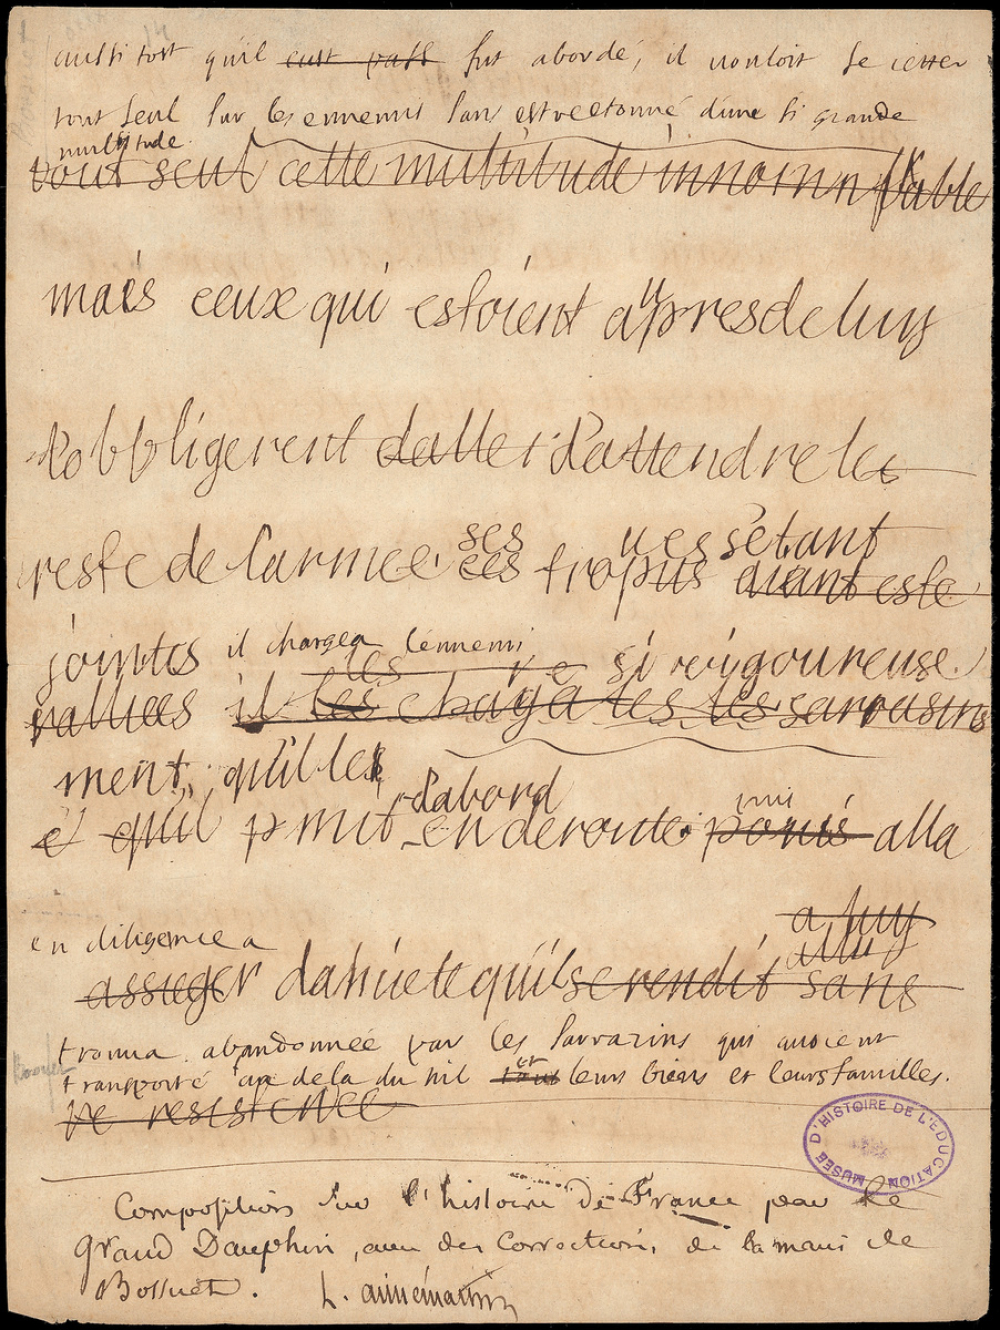 aussi tost qu'il eust pass fut abordé, il vouloit se ietter
tout seul sur les ennemis sans estre etonné d'une si grande
multitude.
tout seul cette multitude innom̃brable
mais ceux qui estoient aupres de luy
l'obbligerent daller d'attendre les
reste de larmee ces ses tropus upes aiant este setant
jointes il chargea l'ennemi si vigoureuse
ralliees il les chargea les les sarrasins
ment, qu'il les
et qu'il prit mit dabord en deroute puis alla
a luy
en diligence a
assieger damiete qu'il se rendit sans
trouua abandonnée par les sarrazins qui auoient
transporté au dela du nil tout et leurs biens et leurs familles.
re resistence
MUSÉE D'HISTOIRE DE L'ÉDUCATION
Composition sur l'histoire de France par le
Grand Dauphin, avec des corrections, de la main de
Bossuet. L. aimé martin